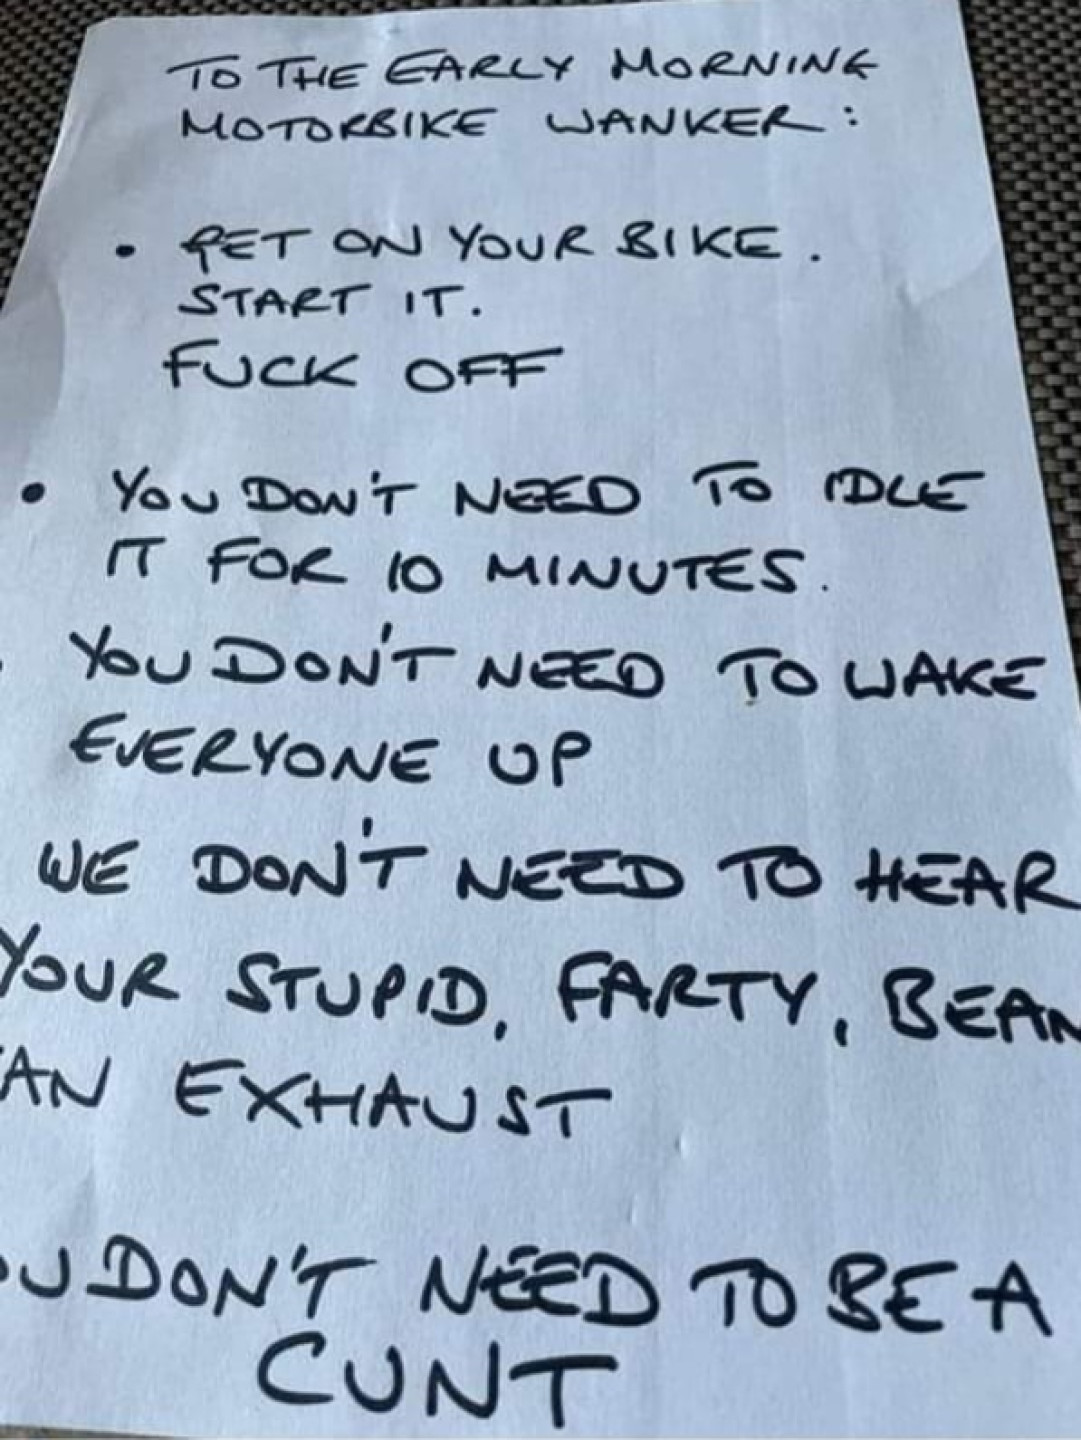 TO THE EARLY MORNING
MOTORBIKE WANKER:
• GET ON YOUR BIKE.
START IT.
FUCK OFF
• YOU DON'T NEED TO IDLE
IT FOR 10 MINUTES.
• YOU DON'T NEED TO WAKE
EVERYONE UP
WE DON'T NEED TO HEAR
YOUR STUPID, FARTY, BEAN
AN EXHAUST
OU DON'T NEED TO BE A
CUNT